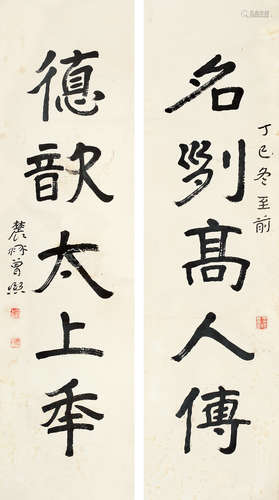 名列髙人傳
丁巳冬至前
德歆太上秊
農髯曾熙